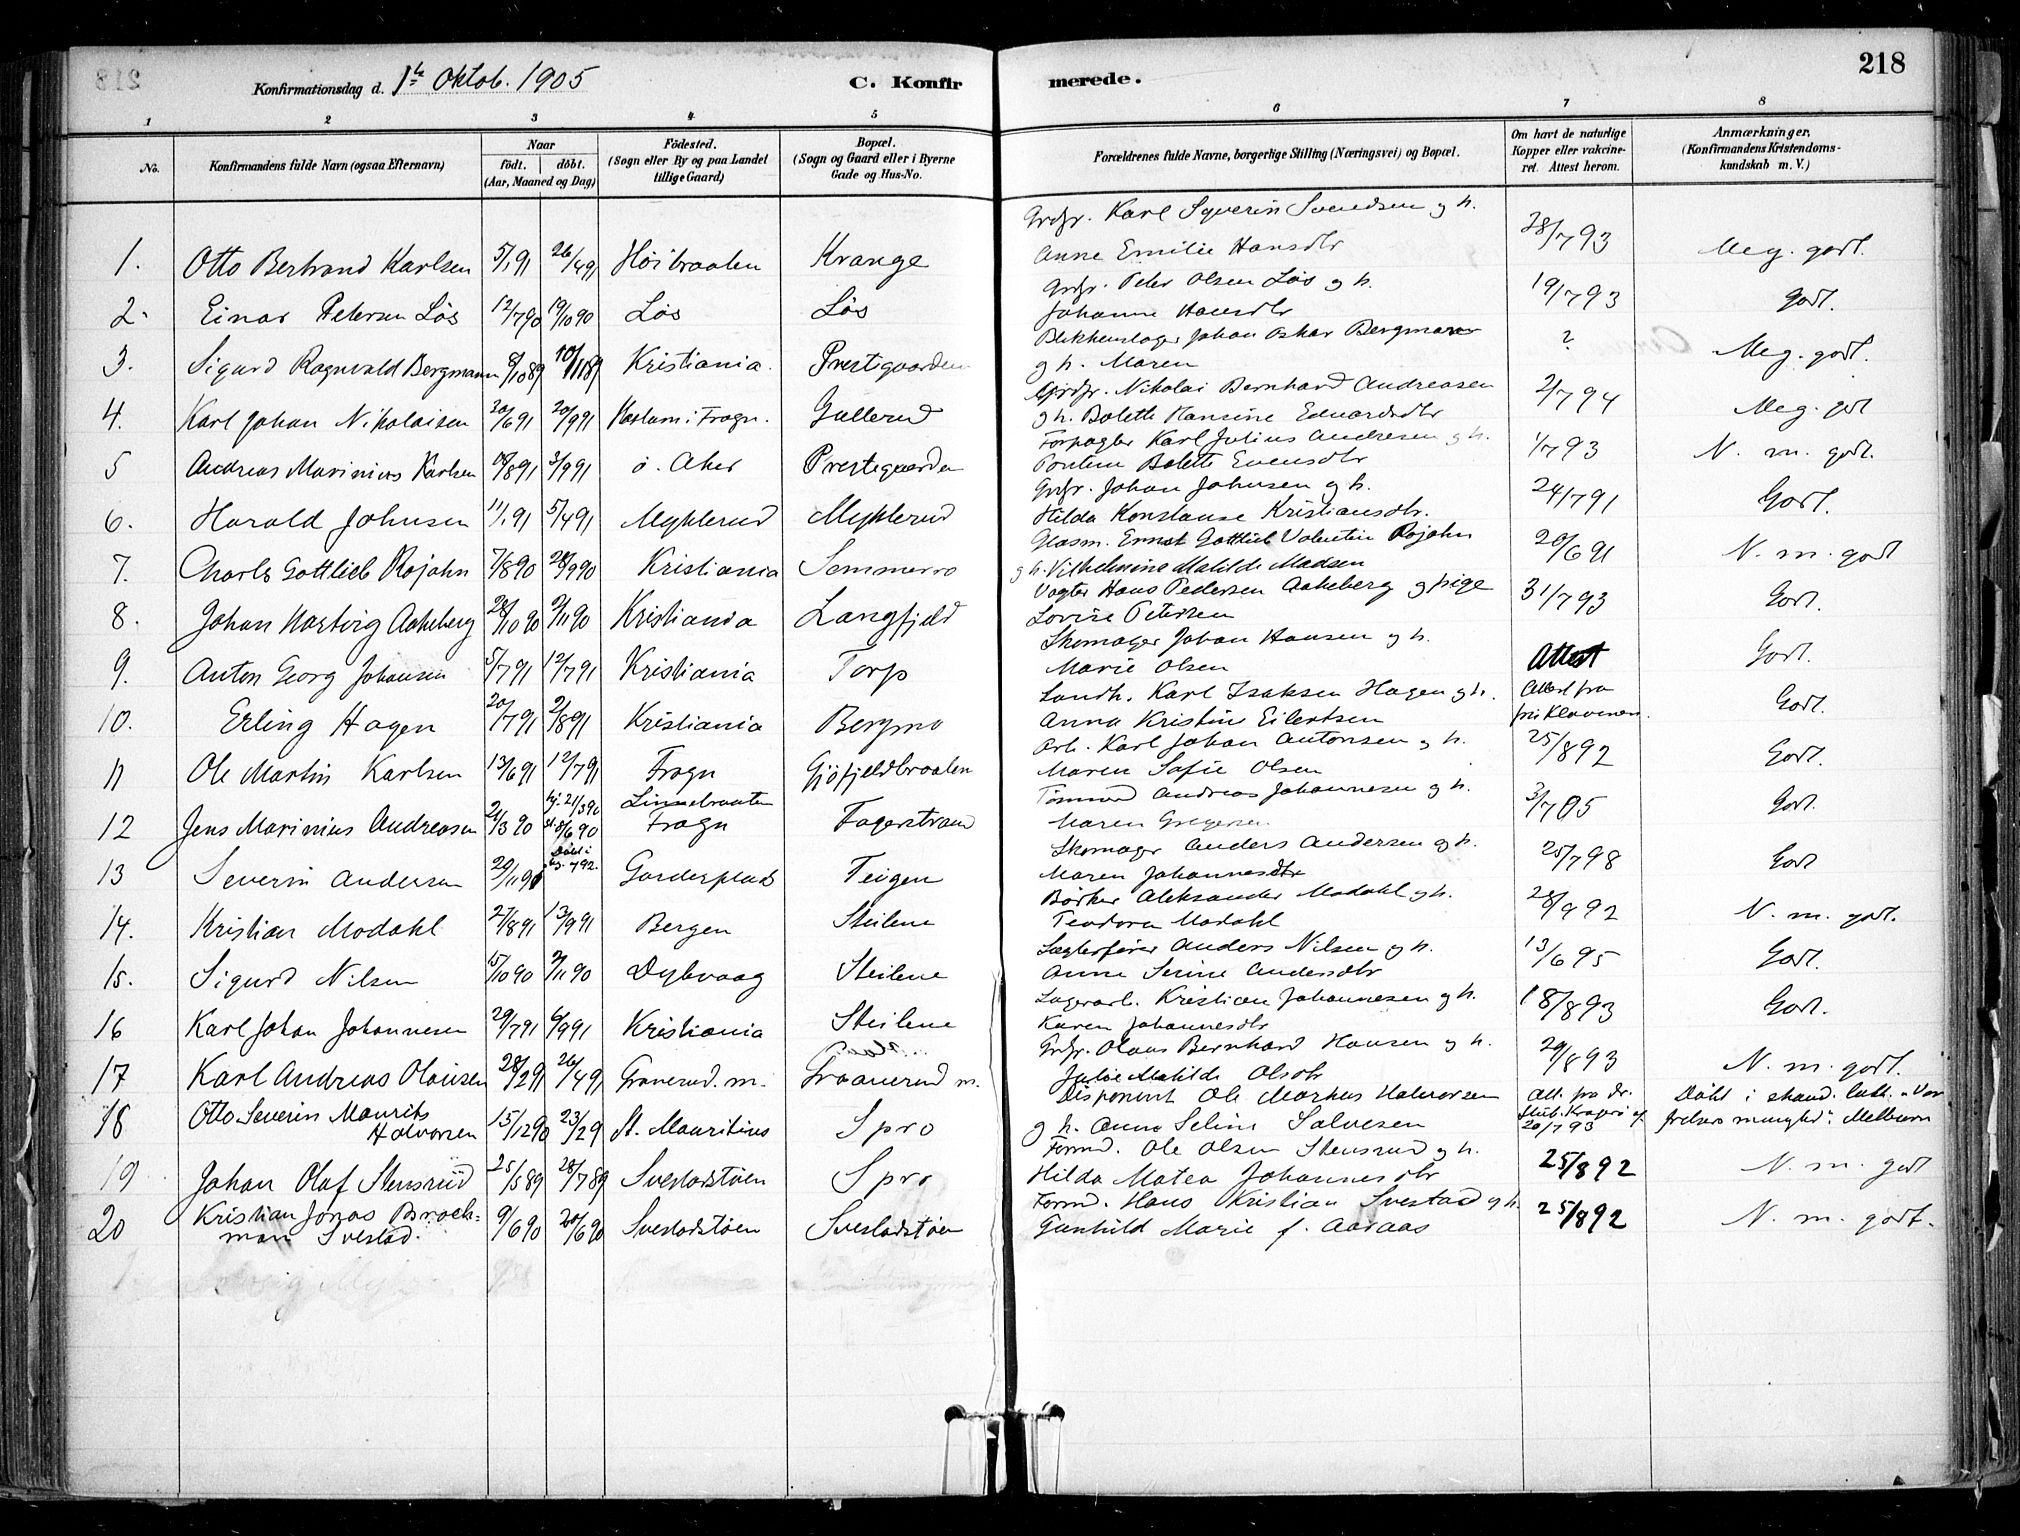 Konfirmationsdag d. 1ste Oktob. 1905
C. Konfirmerede.
218
1 2 3 4 5 6 7 8
No.
Konfirmandens fulde Navn (ogsaa Efternavn)
Naar
födt. döbt.
(Aar, Maaned og Dag)
Födested.
(Sogn eller By og paa Landet
tillige Gaard)
Bopæl.
(Sogn og Gaard eller i Byerne
Gade og Hus-No.
Forældrenes fulde Navne, borgerlige Stilling (Næringsvei) og Bopæl.
Om havt de naturlige
Kopper eller vakcine-
ret. Attest herom.
Anmærkninger.
(Konfirmandens Kristendoms-
kundskab m. V.)
Grdbr. Karl Syverin Svendsen og h.
1. Otto Bertrand Karlsen 5/1 91 26/4 91 Höibraaten Krange Anne Emilie Hansdtr 28/7 93 Meg. godt.
Grdbr. Peter Olsen Lös og h.
2. Einar Petersen Lös 12/7 90 19/10 90 Lös Lös Johanne Hansdtr 19/7 93 Godt.
Blikkenslager Johan Oskar Bergmann
3. Sigurd Ragnvald Bergmann 8/10 89 10/11 89 Kristiania. Prestgaarden og h. Maren ? Meg. godt.
Grdbr. Nikolai Bernhard Andreasen
4. Karl Johan Nikolaisen 20/6 91 20/9 91 i Frogn. Gullerud og h. Bolette Hansine Edvardsdtr 2/7 94 Meg. godt
Forpagter Karl Julius Andresen og h.
5 Andreas Marinius Karlsen 18/8 91 3/9 91 ö. Aker Prestegaarden Bolette Evensdtr 1/7 93 N. m. godt.
Grdbr. Johan Johnsen og h.
6. Harald Johnsen 11/1 91 5/4 91 Myklerud Myklerud Hilda Konstanse Kristiansdtr. 24/7 91 Godt.
Glasm. Ernst Gottlieb Valentin Rojahn
7. Charls Gottlieb Rojahn 7/8 90 28/9 90 Kristiania Sommerro og h. Vilhelmine Matilde Madsen 20/6 91 N. m. godt
Vogter Hans Pedersen Aakeberg og pige
8. Johan Hartvig Aakeberg 28/10 90 2/11 90 Kristiania Langfjeld Lovise Petersen 31/7 93 Godt.
Skomager Johan Hansen og h.
9. Anton Georg Johansen 5/7 91 12/7 91 Kristiania Torp Marie Olsen Attest Godt.
Landh. Karl Isaksen Hagen og h. Attest fra
10. Erling Hagen 20/7 91 2/8 91 Kristiania Bergmo Anna Kristine Eilertsen Godt.
Arb. Karl Johan Antonsen og h.
11 Ole Martin Karlsen 13/6 91 12/7 91 Frogn Gjöfjeldbraaten Maren Sofie Olsen 25/8 92 Godt.
hj. 21/3 90 Tömmerm Andreas Johannesen og h.
12 Jens Marinius Andreasen 21/3 90 st. 8/6 90 Frogn Fagerstrand Maren Gregersen 3/7 05 Godt.
Döbt i Skomager Anders Andersen og h.
13 Severin Andersen 20/11 90 1792 Garderplads Teigen Maren Johannesdtr 25/7 98 Godt
Bödker Aleksander Modahl og h.
14. Kristian Modahl 27/8 91 13/9 91 Bergen Steilene Teodora Modahl 28/9 92 N. m. godt.
Anders Nilsen og h.
15. Sigurd Nilsen 15/10 90 2/11 90 Dybvaag Steilene Anne Serine Andersdtr 13/6 95 Godt.
Lagerarb. Kristian Johannesen og h.
16 Karl Johan Johannesen 29/7 91 6/9 91 Kristiania Steilene Karen Johannesdtr 18/8 93 Godt.
Grdbr. Olaus Bernhard Hansen og h.
17 Karl Andreas Olausen 28/2 91 26/4 91 Granerud. m. Graanerud m. Julie Matilde Olsdtr 29/8 93 N. m. godt.
Otto Severin Maurits Disponent Ole Markus Halvorsen Att. fra dr. Döbt i skand. luth. "Vor
18 Halvorsen 15/12 90 23/2 9 St. Mauritius Spro og h. Anna Seline Salvesen 20/7 93 frelsers menighed" i Melbourn
Formd. Ole Olsen Stensrud og h.
19 Johan Olaf Stensrud 25/5 89 28/7 89 Svestadstöen Spro Hilda Matea Johannesdtr 25/8 92 N. m. godt
Kristian Jonas Brock- Formd. Hans Kristian Svestad og h.
20 man Svestad. 9/6 90 20/6 90 Svestadstöen Svestadstöen Gunhild Marie f. Aaraas 25/8 92 N. m. godt.